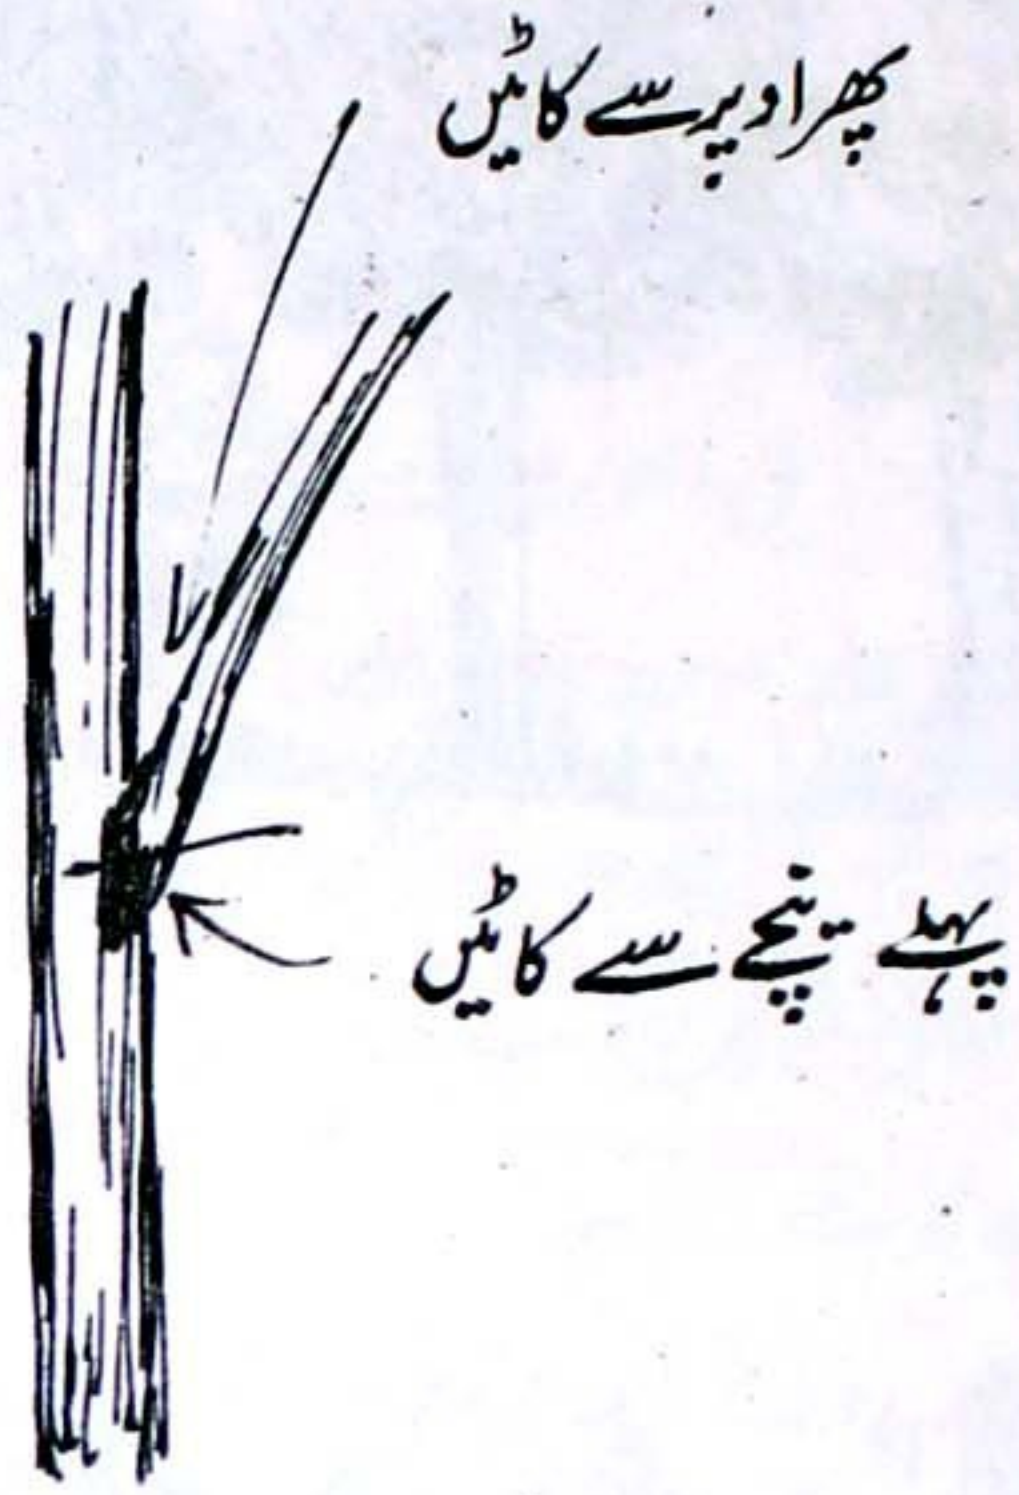 پھر اوپر سے کاٹیں
پہلے نیچے سے کاٹیں